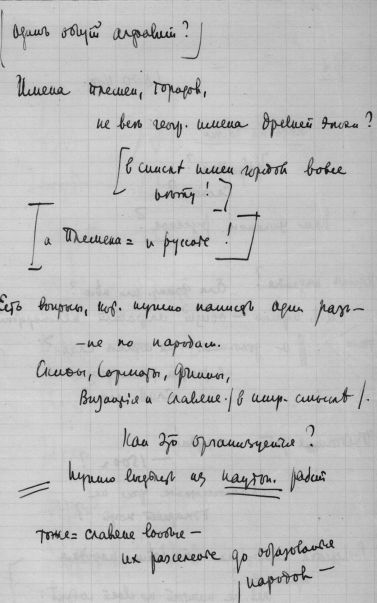 [одинъ общій алфавит?]
Имена племен, городов,
не весь геогр. имена древней эпохи?
[в списке имен городов вовсе
нету!]
[а племена = и русск. !]
Есть вопросы, кот. нужно написать один разъ –
– не по народам.
Скифы, Сарматы, финны,
Византія и славяне /в шир. смысле/.
Как это организуется?
Нужно выделить из научн. работ
тоже = славяне вообще –
их расселение до образованья
народов –